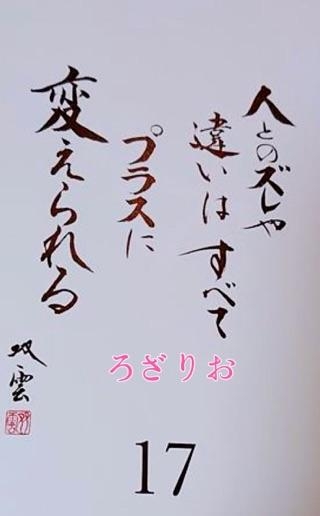 人とのズレや
違いはすべて
プラスに
変えられる
双雲
ろざりお
17